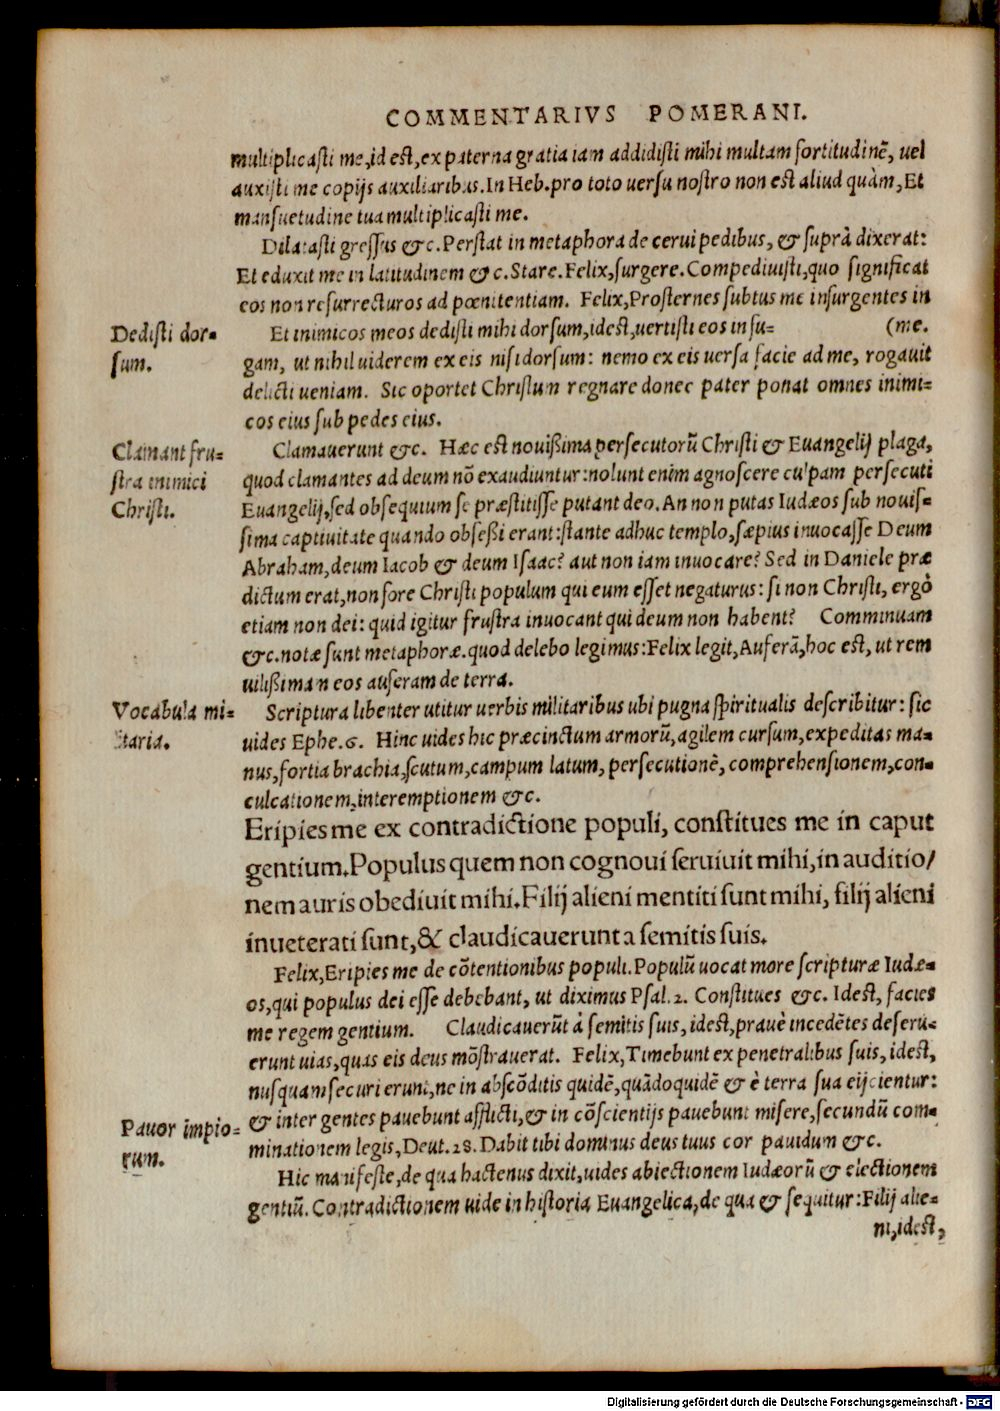 COMMENTARIVS POMERANI.
multiplicasti me,id est,ex paterna gratia iam addidisti mihi multam fortitudinē, uel
auxisti me copijs auxiliaribus.In Heb.pro toto uersu nostro non est aliud quàm,Et
mansuetudine tua multiplicasti me.
Dilatasti gressus &c.Perstat in metaphora de cerui pedibus, & suprà dixerat:
Et eduxit me in latitudinem &c.Stare.Felix,surgere.Compediuisti,quo significat
eos non resurrecturos ad pœnitentiam. Felix,Prosternes subtus me insurgentes in
Dedisti dor=
sum.
Et inimicos meos dedisti mihi dorsum,idest,uertisti eos in fu= (me.
gam, ut nihil uiderem ex eis nisi dorsum: nemo ex eis uersa facie ad me, rogauit
delicti ueniam. Sic oportet Christum regnare donec pater ponat omnes inimi=
cos eius sub pedes eius.
Clamant fru=
stra inimici
Christi.
Clamauerunt &c. Hæc est nouißima persecutorū Christi & Euangelij plaga,
quod clamantes ad deum nō exaudiuntur:nolunt enim agnoscere culpam persecuti
Euangelij,sed obsequium se præstitisse putant deo.An non putas Iudæos sub nouis=
sima captiuitate quando obseßi erant:stante adhuc templo,sæpius inuocasse Deum
Abraham,deum Iacob & deum Isaac? aut non iam inuocare? Sed in Daniele præ
dictum erat,non fore Christi populum qui eum esset negaturus: si non Christi, ergò
etiam non dei: quid igitur frustra inuocant qui deum non habent? Comminuam
&c.notæ sunt metaphoræ.quod delebo legimus:Felix legit,Auferā,hoc est, ut rem
uilißimam eos auferam de terra.
Vocabula mi=
litaria.
Scriptura libenter utitur uerbis militaribus ubi pugna spiritualis describitur: sic
uides Ephe.6. Hinc uides hic præcinctum armorū,agilem cursum,expeditas ma=
nus,fortia brachia,scutum,campum latum, persecutionē, comprehensionem,con=
culcationem,interemptionem &c.
Eripies me ex contradictione populi, constitues me in caput
gentium.Populus quem non cognoui seruiuit mihi,in auditio/
nem auris obediuit mihi.Filij alieni mentiti sunt mihi, filij alieni
inueterati sunt,& claudicauerunt a semitis suis.
Felix,Eripies me de cōtentionibus populi.Populū uocat more scripturæ Iudæ=
os,qui populus dei esse debebant, ut diximus Psal.2. Constitues &c. Idest, facies
me regem gentium. Claudicauerūt à semitis suis, idest,prauè incedētes deseru=
erunt uias,quas eis deus mōstrauerat. Felix,Timebunt ex penetralibus suis, idest,
nusquam securi erunt,ne in abscōditis quidē,quādoquidē & è terra sua eijcientur:
Pavor impio=
rum.
& inter gentes pauebunt afflicti,& in cōscientijs pauebunt misere,secundū com=
minationem legis,Deut.28.Dabit tibi dominus deus tuus cor pauidum &c.
Hic manifeste,de qua hactenus dixit,uides abiectionem Iudæorū & electionem
gentiū.Contradictionem uide in historia Euangelica,de qua & sequitur:Filij alie=
ni,idest,
Digitalisierung gefördert durch die Deutsche Forschungsgemeinschaft - DFG